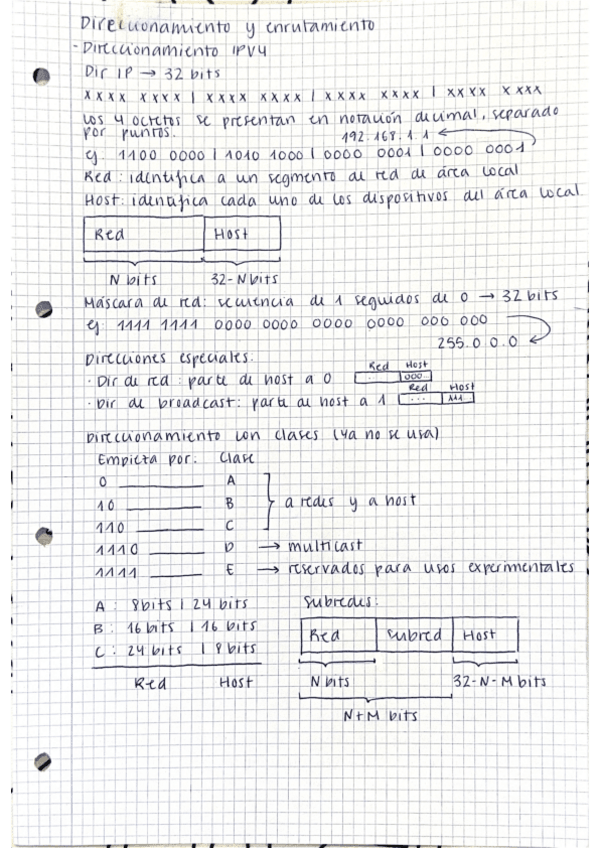 Direccionamiento y enrutamiento
- Direccionamiento IPV4
Dir IP → 32 bits
xxxx xxxx | xxxx xxxx | xxxx xxxx | xxxx xxxx
Los 4 octetos se presentan en notación decimal, separado
por puntos. 192.168.1.1
ej. 1100 0000 | 1010 1000 | 0000 0001 | 0000 0001
Red: identifica a un segmento de red de área local
Host: identifica cada uno de los dispositivos del área local
Red Host
N bits 32-N bits
Máscara de red: secuencia de 1 seguidos de 0 → 32 bits
ej 1111 1111 0000 0000 0000 0000 000 000
255.0 0.0
Direcciones especiales.
Red Host
· Dir de red: parte de host a 0 000
Red Host
· Dir de broadcast: parte de host a 1 ... 111
Direccionamiento con clases (ya no se usa)
Empieza por: Clase
0 A
10 B a redes y a host
110 C
1110 D → multicast
1111 E → reservados para usos experimentales
A: 8bits | 24 bits Subredes:
B: 16 bits | 16 bits
Red Subred Host
C: 24 bits | 8 bits
Red Host N bits 32-N-M bits
N+M bits